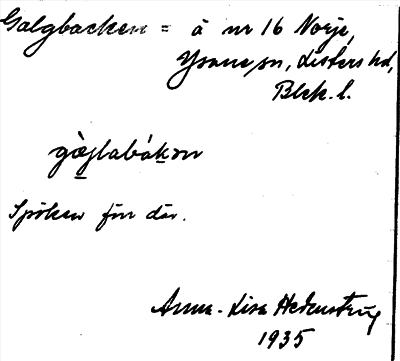 Galgbacken = å nr 16 Norje,
Ysane sn, Listers hd,
Blek. l.
gàglabákən
Spöken fin där.
Anna-Lisa Hedenstrug
1935